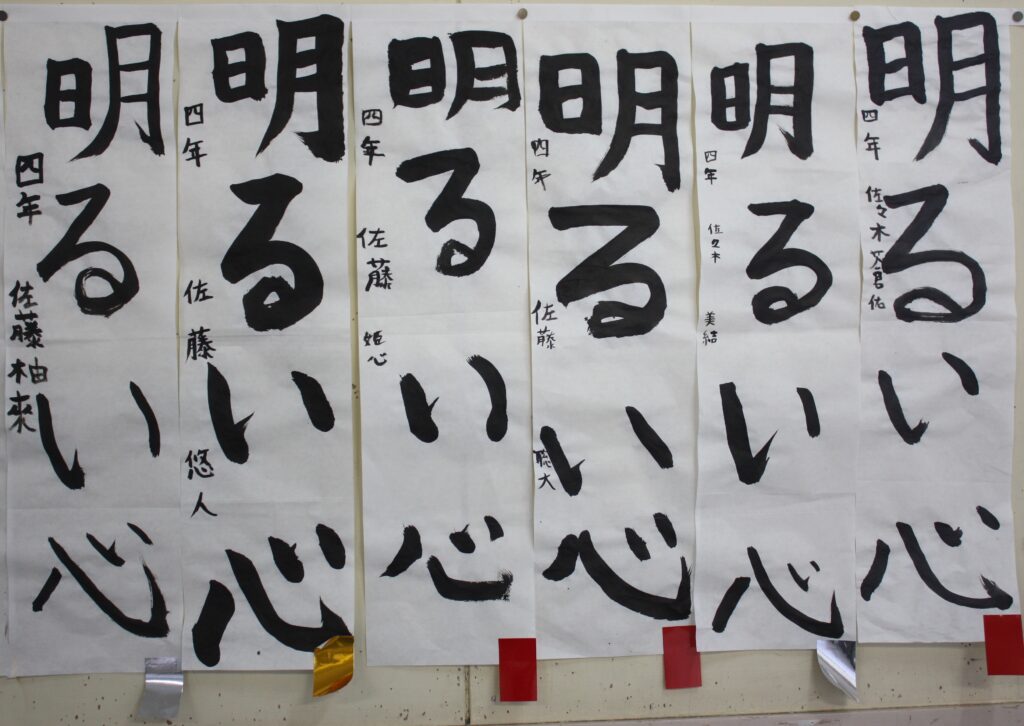 明るい心
四年 佐々木
明るい心
四年 佐々木 美結
明るい心
四年 佐藤 聡大
明るい心
四年 佐藤 姫心
明るい心
四年 佐藤 悠人
明るい心
四年 佐藤柚來